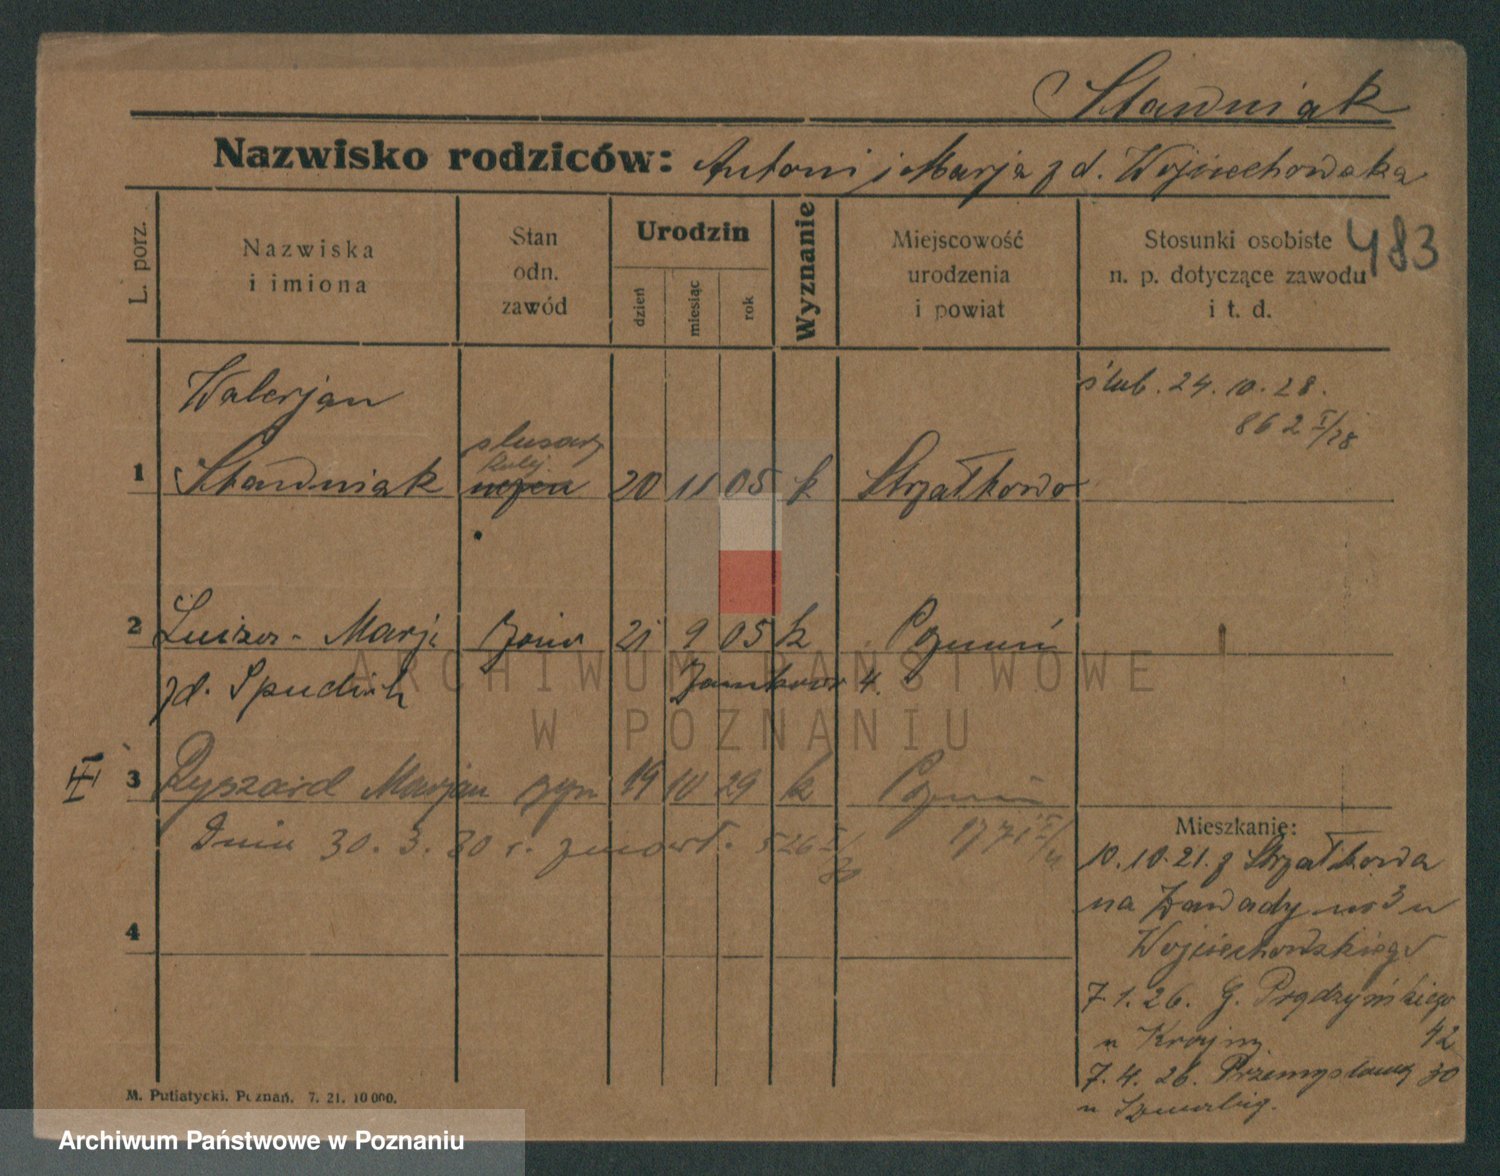 Stawniak
Nazwisko rodziców: Antoni i Marja z d. Wojciechowska
483
L. porz.
Nazwiska
i imiona
Stan
odn.
zawód
Urodzin
dzień
miesiąc
rok
Wyznanie
Miejscowość
urodzenia
i powiat
Stosunki osobiste
n. p. dotyczące zawodu
i t. d.
Walerjan
ślub. 24. 10. 28.
862 I/28
ślusarz
kolej.
1 Stawniak uczeń 20 11 05 k Strzałkowo
2 Luiza - Marja żona 21 9 05 k Poznań
zd. Spudich Zamkowa 4.
III 3 Ryszard Marjan syn 19 10 29 k Poznań
Dnia 30. 3. 30 r. zmarł. 526 I/30
4
Mieszkanie:
10.10.21. z Strzałkowa
na Zawady nr 3 u
Wojciechowskiego
7.1.26. G. Prądzyńskiego
42
u Krajny
7.4.26. Przemysłowa 30
u
M. Putiatycki. Poznań. 7. 21. 10 000.
ARCHIWUM PAŃSTWOWE
W POZNANIU
Archiwum Państwowe w Poznaniu